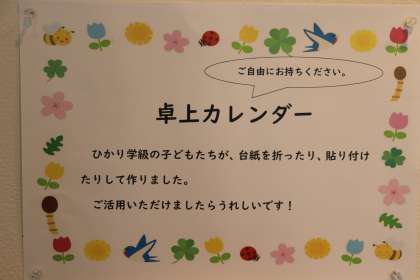 ご自由にお持ちください。
卓上カレンダー
ひかり学級の子どもたちが、台紙を折ったり、貼り付け
たりして作りました。
ご活用いただけましたらうれしいです！